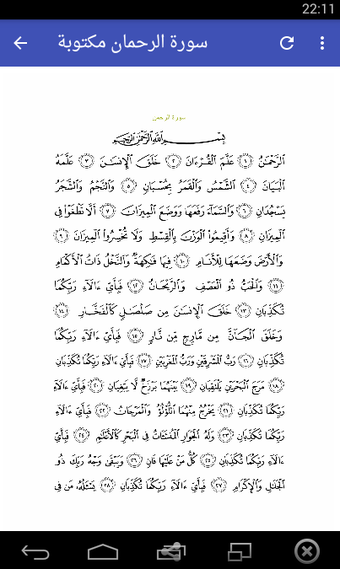 22:11
سورة الرحمان مكتوبة
سورة الرحمن
بِسْمِ ٱللَّهِ ٱلرَّحْمَٰنِ ٱلرَّحِيمِ
ٱلرَّحْمَٰنُ ١ عَلَّمَ ٱلْقُرْءَانَ ٢ خَلَقَ ٱلْإِنسَٰنَ ٣ عَلَّمَهُ
ٱلْبَيَانَ ٤ ٱلشَّمْسُ وَٱلْقَمَرُ بِحُسْبَانٍ ٥ وَٱلنَّجْمُ وَٱلشَّجَرُ
يَسْجُدَانِ ٦ وَٱلسَّمَآءَ رَفَعَهَا وَوَضَعَ ٱلْمِيزَانَ ٧ أَلَّا تَطْغَوْا۟ فِى
ٱلْمِيزَانِ ٨ وَأَقِيمُوا۟ ٱلْوَزْنَ بِٱلْقِسْطِ وَلَا تُخْسِرُوا۟ ٱلْمِيزَانَ ٩
وَٱلْأَرْضَ وَضَعَهَا لِلْأَنَامِ ١٠ فِيهَا فَٰكِهَةٌ وَٱلنَّخْلُ ذَاتُ ٱلْأَكْمَامِ
١١ وَٱلْحَبُّ ذُو ٱلْعَصْفِ وَٱلرَّيْحَانُ ١٢ فَبِأَىِّ ءَالَآءِ رَبِّكُمَا
تُكَذِّبَانِ ١٣ خَلَقَ ٱلْإِنسَٰنَ مِن صَلْصَٰلٍ كَٱلْفَخَّارِ ١٤
وَخَلَقَ ٱلْجَآنَّ مِن مَّارِجٍ مِّن نَّارٍ ١٥ فَبِأَىِّ ءَالَآءِ رَبِّكُمَا
تُكَذِّبَانِ ١٦ رَبُّ ٱلْمَشْرِقَيْنِ وَرَبُّ ٱلْمَغْرِبَيْنِ ١٧ فَبِأَىِّ ءَالَآءِ رَبِّكُمَا تُكَذِّبَانِ
١٨ مَرَجَ ٱلْبَحْرَيْنِ يَلْتَقِيَانِ ١٩ بَيْنَهُمَا بَرْزَخٌ لَّا يَبْغِيَانِ ٢٠ فَبِأَىِّ ءَالَآءِ
رَبِّكُمَا تُكَذِّبَانِ ٢١ يَخْرُجُ مِنْهُمَا ٱللُّؤْلُؤُ وَٱلْمَرْجَانُ ٢٢ فَبِأَىِّ ءَالَآءِ
رَبِّكُمَا تُكَذِّبَانِ ٢٣ وَلَهُ ٱلْجَوَارِ ٱلْمُنشَـَٔاتُ فِى ٱلْبَحْرِ كَٱلْأَعْلَٰمِ ٢٤ فَبِأَىِّ
ءَالَآءِ رَبِّكُمَا تُكَذِّبَانِ ٢٥ كُلُّ مَنْ عَلَيْهَا فَانٍ ٢٦ وَيَبْقَىٰ وَجْهُ رَبِّكَ ذُو
ٱلْجَلَٰلِ وَٱلْإِكْرَامِ ٢٧ فَبِأَىِّ ءَالَآءِ رَبِّكُمَا تُكَذِّبَانِ ٢٨ يَسْـَٔلُهُۥ مَن فِى